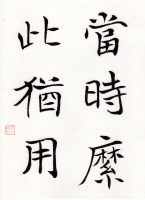 當時縻
此猶用